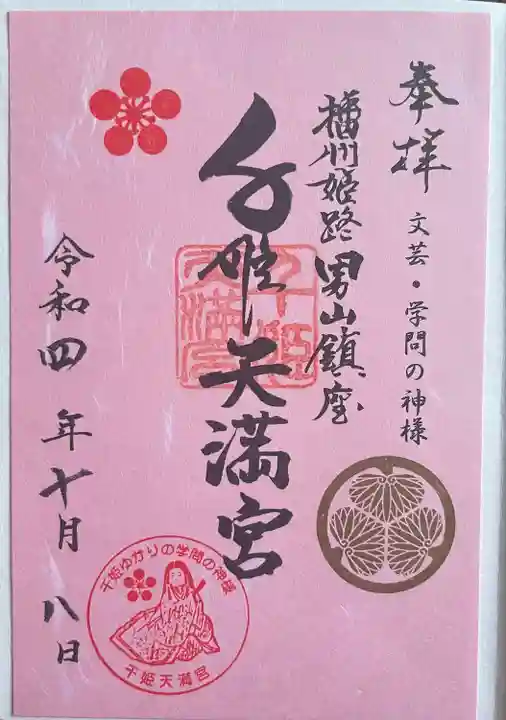 奉拝
文芸・学問の神様
播州姫路男山鎮座
千姫天満宮
千姫天満宮
令和四年十月八日
千姫ゆかりの学問の神様
千姫天満宮